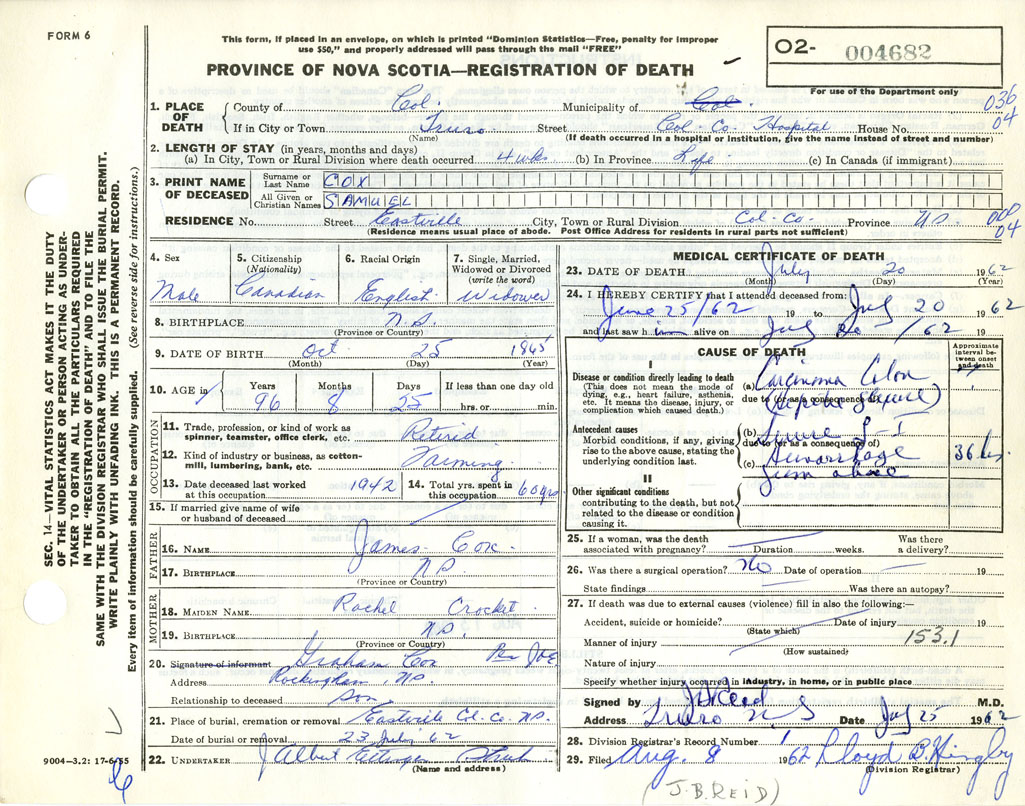 FORM 6
This form, if placed in an envelope, on which is printed "Dominion Statistics—Free, penalty for improper
use $50," and properly addressed will pass through the mail "FREE"
PROVINCE OF NOVA SCOTIA—REGISTRATION OF DEATH
O2- 004682
For use of the Department only
036
04
1. PLACE OF DEATH
County of Col. Municipality of Col.
If in City or Town Truro. Street Col. Co. Hospital House No.
(Name) (If death occurred in a hospital or institution, give the name instead of street and number)
2. LENGTH OF STAY (in years, months and days)
(a) In City, Town or Rural Division where death occurred 4 wks. (b) In Province Life. (c) In Canada (if immigrant)
3. PRINT NAME OF DECEASED
Surname or Last Name COX
All Given or Christian Names SAMUEL
RESIDENCE No. Street Eastville City, Town or Rural Division Col. Co. Province N.S. 000
04
(Residence means usual place of abode. Post Office Address for residents in rural parts not sufficient)
SEC. 14—VITAL STATISTICS ACT MAKES IT THE DUTY
OF THE UNDERTAKER OR PERSON ACTING AS UNDER-
TAKER TO OBTAIN ALL THE PARTICULARS REQUIRED
IN THE "REGISTRATION OF DEATH" AND TO FILE THE
SAME WITH THE DIVISION REGISTRAR WHO SHALL ISSUE THE BURIAL PERMIT.
WRITE PLAINLY WITH UNFADING INK. THIS IS A PERMANENT RECORD.
Every item of information should be carefully supplied. (See reverse side for instructions.)
4. Sex
Male
5. Citizenship (Nationality)
Canadian
6. Racial Origin
English
7. Single, Married, Widowed or Divorced (write the word)
Widower
8. BIRTHPLACE N.S.
(Province or Country)
9. DATE OF BIRTH Oct. 25 1865
(Month) (Day) (Year)
10. AGE in
Years 96 Months 8 Days 25 If less than one day old
hrs. or min.
OCCUPATION
11. Trade, profession, or kind of work as
spinner, teamster, office clerk, etc. Retired
12. Kind of industry or business, as cotton-
mill, lumbering, bank, etc. Farming
13. Date deceased last worked
at this occupation 1942
14. Total yrs. spent in
this occupation 60 yrs
15. If married give name of wife
or husband of deceased
FATHER
16. NAME James Cox.
17. BIRTHPLACE N.S.
(Province or Country)
MOTHER
18. MAIDEN NAME Rachel Crocket
19. BIRTHPLACE N.S.
(Province or Country)
20. Signature of informant Graham Cox Per
Address Rockingham, N.S.
Relationship to deceased Son
21. Place of burial, cremation or removal Eastville Col. Co. N.S.
Date of burial or removal 23 July '62
22. UNDERTAKER J Albert Ettinger
(Name and address)
9004-3.2: 17-6-55
MEDICAL CERTIFICATE OF DEATH
23. DATE OF DEATH July 20 1962
(Month) (Day) (Year)
24. I HEREBY CERTIFY that I attended deceased from:
June 25/62 19 to July 20 1962
and last saw him alive on July 20 /62
CAUSE OF DEATH
Approximate interval between onset and death
I
Disease or condition directly leading to death
(This does not mean the mode of dying, e.g., heart failure, asthenia, etc. It means the disease, injury, or complication which caused death.)
(a) Carcinoma Colon
due to (or as a consequence of)
Antecedent causes
Morbid conditions, if any, giving rise to the above cause, stating the underlying condition last.
(b)
due to (or as a consequence of)
(c) Hemorrhage 36 hrs.
from above
II
Other significant conditions
contributing to the death, but not related to the disease or condition causing it.
25. If a woman, was the death
associated with pregnancy? Duration weeks. Was there a delivery?
26. Was there a surgical operation? No Date of operation 19
State findings Was there an autopsy?
27. If death was due to external causes (violence) fill in also the following:—
Accident, suicide or homicide? Date of injury 19
(State which)
Manner of injury 153.1
(How sustained)
Nature of injury
Specify whether injury occurred in industry, in home, or in public place
Signed by J B Reid M.D.
Address Truro N S Date July 25 1962
28. Division Registrar's Record Number 1
29. Filed Aug. 8 1962 Lloyd B. Hingley
(Division Registrar)
(J.B. REID)